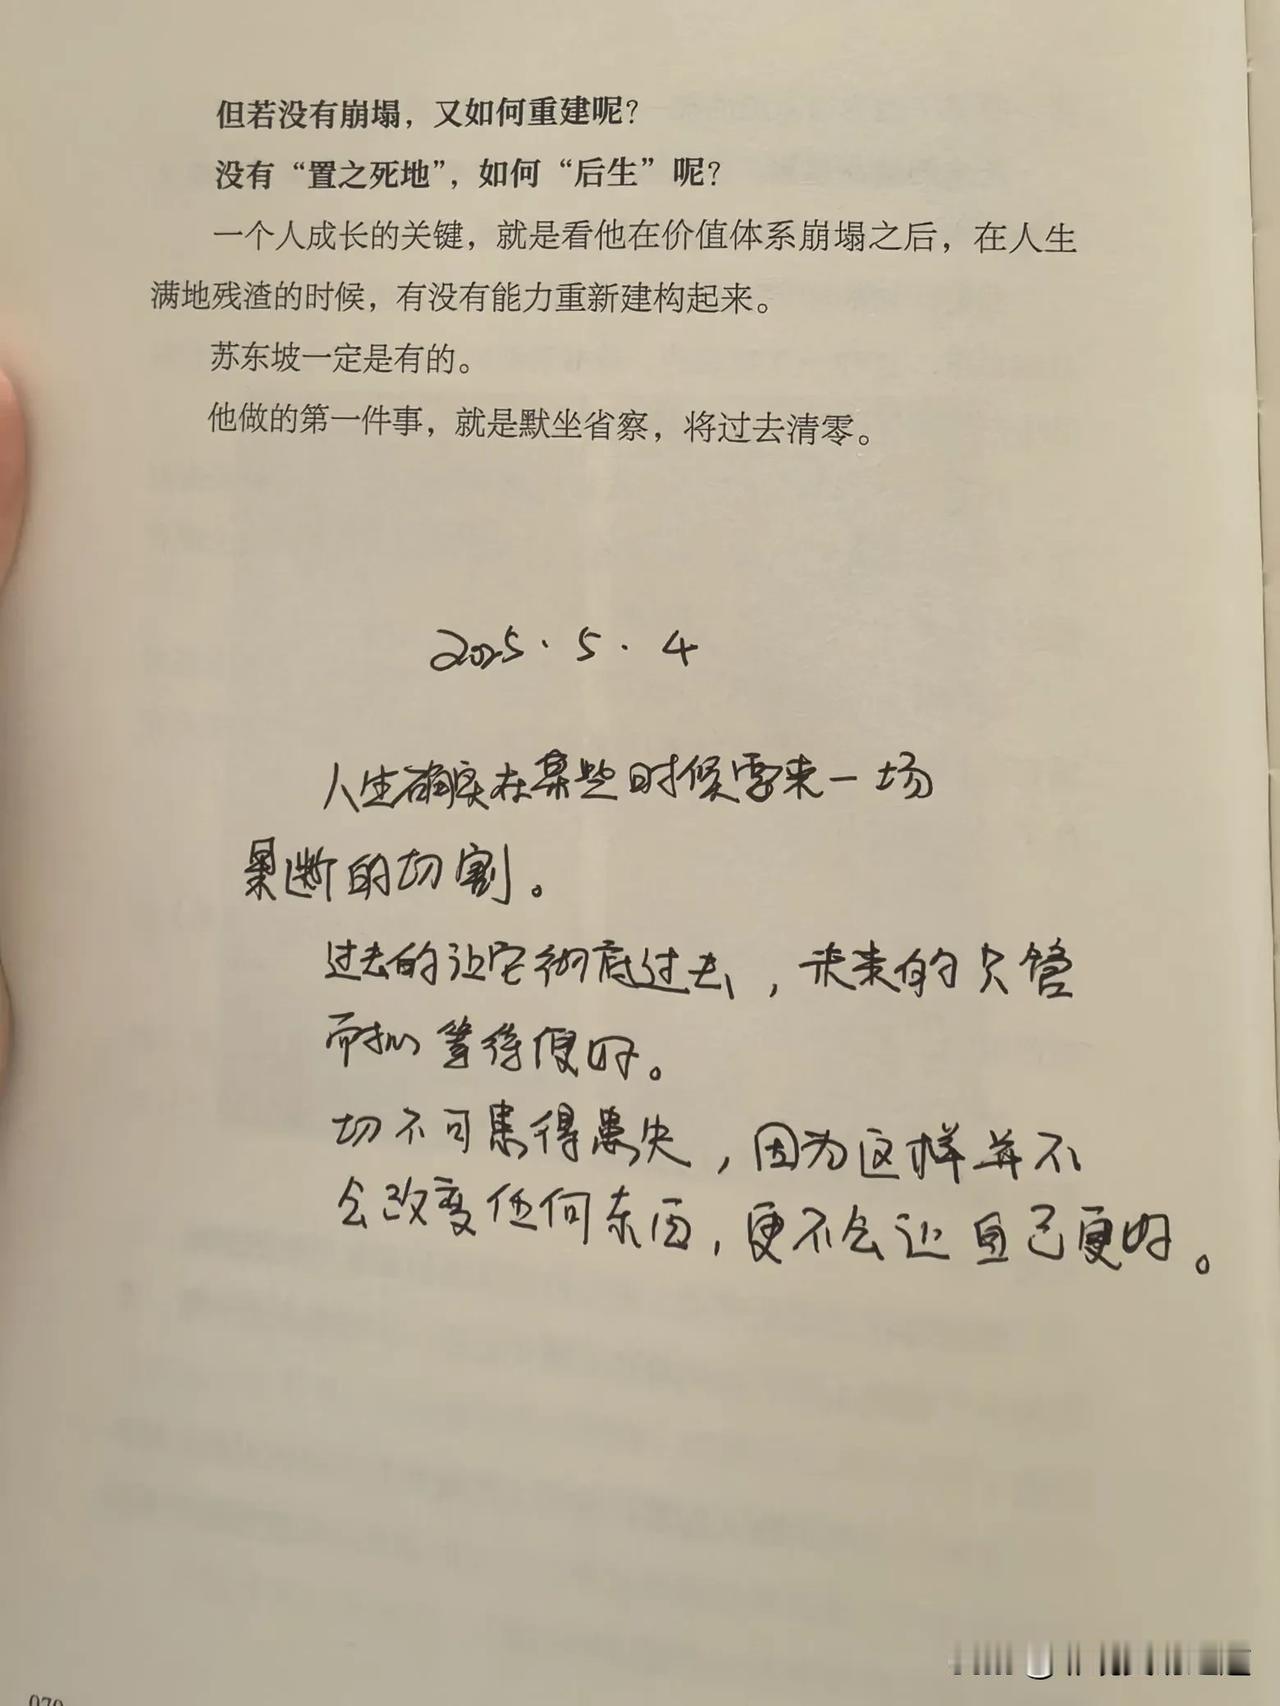 但若没有崩塌，又如何重建呢？
没有“置之死地”，如何“后生”呢？
一个人成长的关键，就是看他在价值体系崩塌之后，在人生
满地残渣的时候，有没有能力重新建构起来。
苏东坡一定是有的。
他做的第一件事，就是默坐省察，将过去清零。
2025.5.4
人生确实在某些时候需要来一场
果断的切割。
过去的让它彻底过去，未来的只管
耐心等待便好。
切不可患得患失，因为这样并不
会改变任何东西，更不会让自己更好。